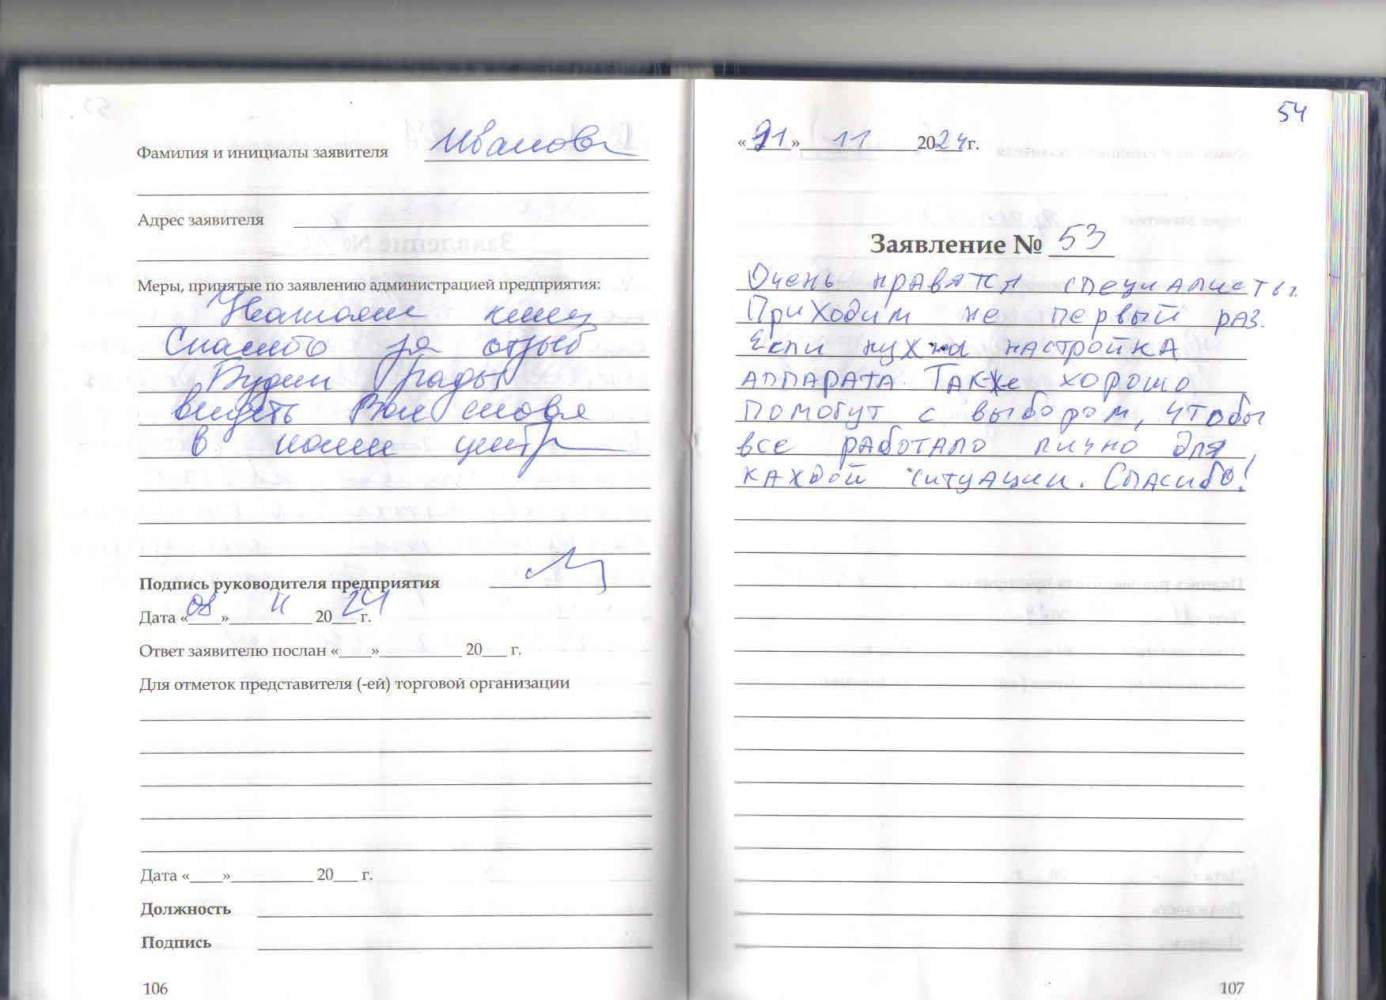 Фамилия и инициалы заявителя Иванова
Адрес заявителя
Меры, принятые по заявлению администрацией предприятия:
Спасибо за отзыв
Будем рады
видеть Вас снова
в нашем центре
Подпись руководителя предприятия
Дата «08» 11 2024 г.
Ответ заявителю послан «___»__________ 20___ г.
Для отметок представителя (-ей) торговой организации
Дата «____»__________ 20___ г.
Должность
Подпись
106
54
«21» 11 2024г.
Заявление № 53
Очень нравятся специалисты.
Приходим не первый раз.
Если нужна настройка
аппарата. Также хорошо
помогут с выбором, чтобы
все работало лично для
каждой ситуации. Спасибо!
107